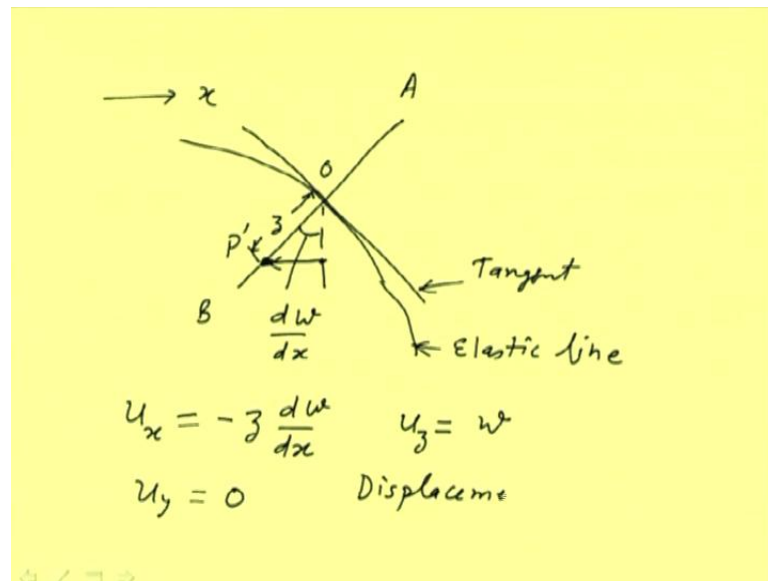 x
A
O
z
P'
B
dw
dx
Tangent
Elastic line
u_x = -z dw/dx u_z = w
u_y = 0 Displaceme